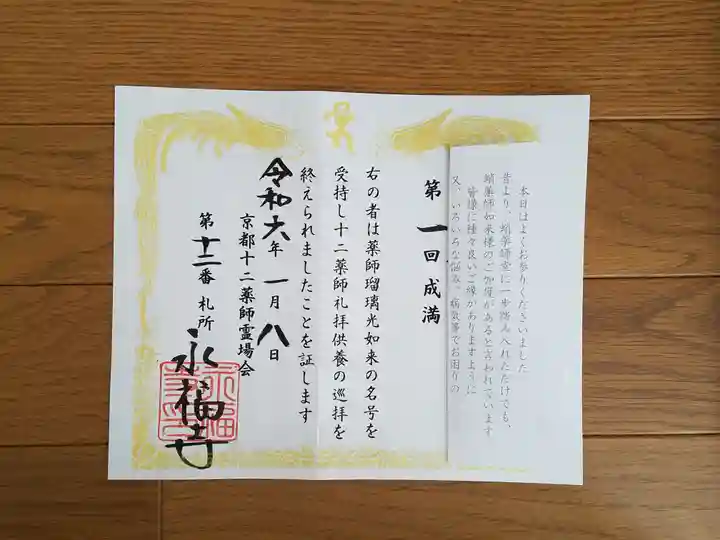 本日はよくお参りくださいました
昔より、蛸薬師堂に一歩踏み入れただけでも、
蛸薬師如来様のご加護があると言われています
皆様に種々良いご縁がありますように
又、いろいろな悩み、病気等でお困りの
第一回成満
右の者は薬師瑠璃光如来の名号を
受持し十二薬師礼拝供養の巡拝を
終えられましたことを証します
令和六年一月八日
京都十二薬師霊場会
第十二番札所
永福寺